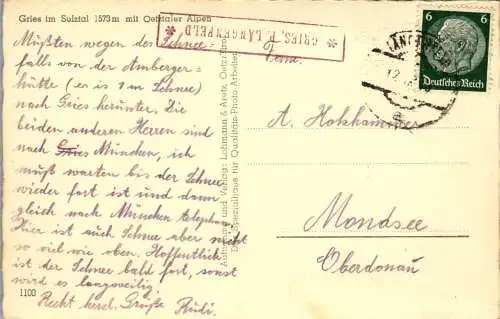 Gries im Sulztal 1573 m mit Oetztaler Alpen
Mußten wegen des Schnee-
falls von der Amberger-
hütte (er is 1 m Schnee)
nach Gries herunter. Die
beiden anderen Herren sind
nach Gries München, ich
muß warten bis der Schnee
wieder fort ist und dann
gleich nach München
Hier ist auch Schnee aber nicht
so viel wie oben. Hoffentlich
ist der Schnee bald fort, sonst
wird es langweilig.
Recht herzl. Grüße Rudi.
1100
Aufnahme und Verlag: Lohmann & Aretz, Oetz/
Das Spezialhaus für Qualitäts-Photo-Arbeiten
* GRIES, P. LÄNGENFELD *
LÄNGENFELD
6 6
Deutsches Reich
A. Holzhammer
Mondsee
Oberdonau